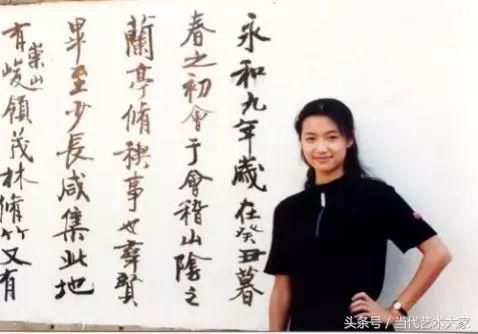 永和九年歲在癸丑暮
春之初會于會稽山陰之
蘭亭脩稧事也羣賢
畢至少長咸集此地
有崇山峻領茂林脩竹又有
头条号 / 当代艺术大家